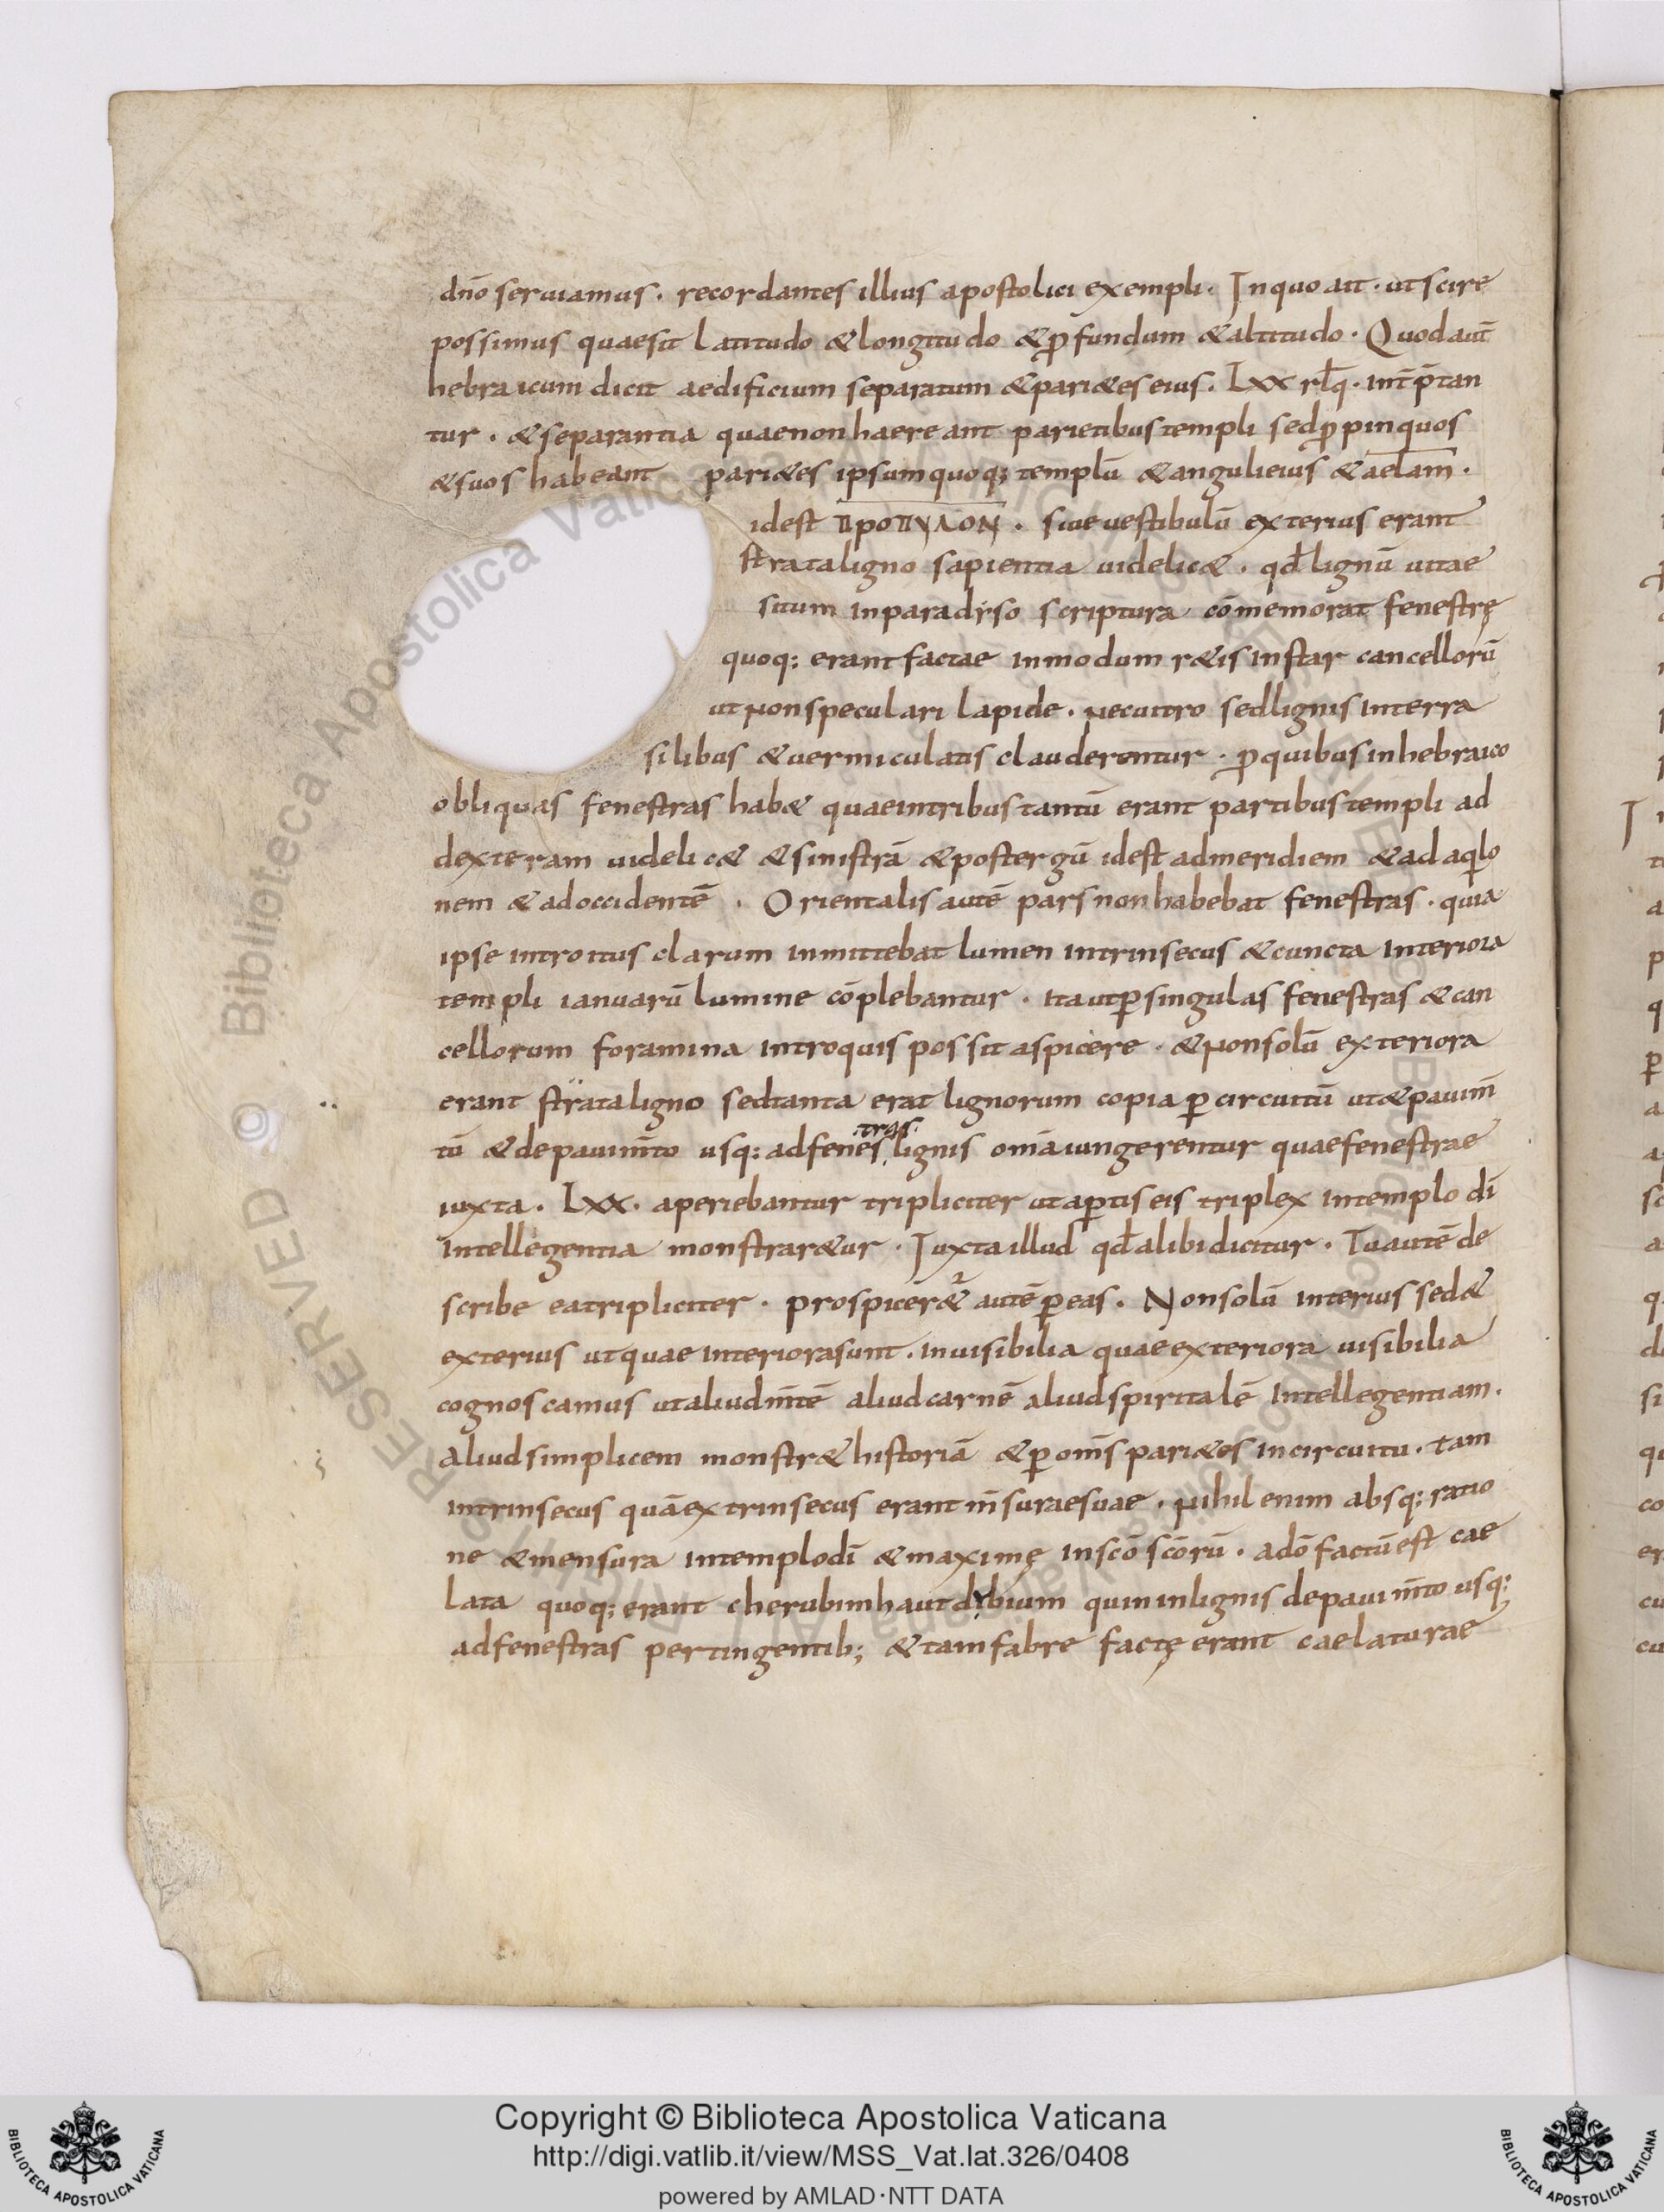 dn̄o seruiamus. recordantes illius apostolici exempli. In quo ait. ut scire
possimus quae sit latitudo & longitudo & ꝓfundum & altitudo. Quod aut̄
hebraicum dicit aedificium separatum & pari&es eius. LXX rlq̄. int̄p̄tan
tur. & separantia quae non haereant parietibus templi sed ꝓpinquos
& suos habeant pari&es ipsum quoq; templū & anguli eius & aelam.
idest προπυλον. siue uestibulū exterius erant
strata ligno sapientia uidelic&. qđ lignū uitae
situm in paradyso scriptura cōmemorat fenestrę
quoq: erant factae in modum r&is instar cancellorū
ut non speculari lapide. nec uitro sed lignis interra
silibus & uermiculatis clauderentur. ꝓ quibus in hebraico
obliquas fenestras hab& quae in tribus tantū erant partibus templi ad
dexteram uidelic& & sinistrā & post ergū idest ad meridiem & ad aqlo
nem & ad occidentē. Orientalis autē pars non habebat fenestras. quia
ipse introitus clarum inmittebat lumen intrinsecus & cuncta interiora
templi ianuarū lumine cōplebantur. ita ut ꝑ singulas fenestras & can
cellorum foramina introquis possit aspicere. & non solū exteriora
erant strata ligno sed tanta erat lignorum copia ꝑ circuitū ut & pauim̄
tū & de pauim̄to usq: ad fenes lignis om̄a iungerentur quae fenestrae
.tras.
iuxta. LXX. aperiebantur tripliciter ut aꝑtis eis triplex in templo dī
intellegentia monstrar&ur. Iuxta illud qđ alibi dicitur. Tu autē de
scribe ea tripliciter. prospicer& autē ꝑ eas. Non solū interius sed &
exterius ut quae interiora sunt. inuisibilia quae exteriora uisibilia
cognoscamus ut aliud m̄tē aliud carnē aliud spiritalē intellegentiam.
aliud simplicem monstr& historiā & ꝑ om̄s pari&es in circuitu. tam
intrinsecus quā extrinsecus erant m̄surae suae. nihil enim absq: ratio
ne & mensura in templo dī & maximę in scō scōrū. adō factū est cae
lata quoq; erant cherubim haut dybium quin in lignis de pauim̄to usq:
ad fenestras pertingentib; & tam fabre factę erant caelaturae
Copyright © Biblioteca Apostolica Vaticana
http://digi.vatlib.it/view/MSS_Vat.lat.326/0408
powered by AMLAD·NTT DATA
BIBLIOTECA APOSTOLICA VATICANA
BIBLIOTECA APOSTOLICA VATICANA